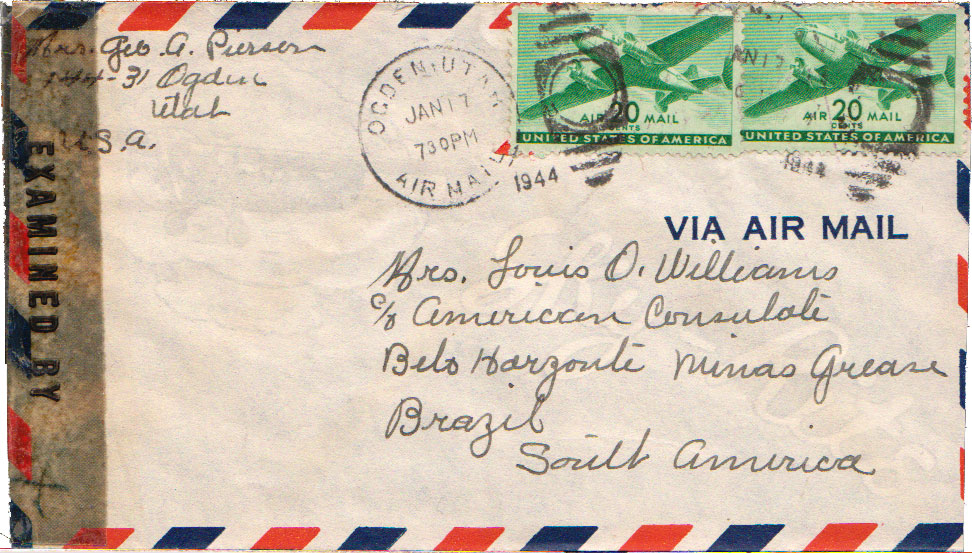 Mrs. Geo A. Pierson
144-31 Ogden
Utah
U.S.A.
EXAMINED BY
OGDEN, UTAH
JAN 17
730 PM
AIR MAIL
1944
20
CENTS
AIR MAIL
UNITED STATES OF AMERICA
JAN 17
1944
20
CENTS
AIR MAIL
UNITED STATES OF AMERICA
VIA AIR MAIL
Mrs. Louis O. Williams
c/o American Consulate
Belo Harzonte Minas Grease
Brazil
South America